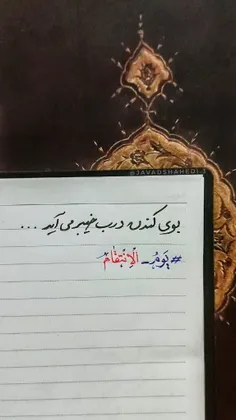 @JAVADSHAHEDI.S
بوی کندن درب خیبر می آید ...
#یَومُ_الْاِنْتِقٰامْ